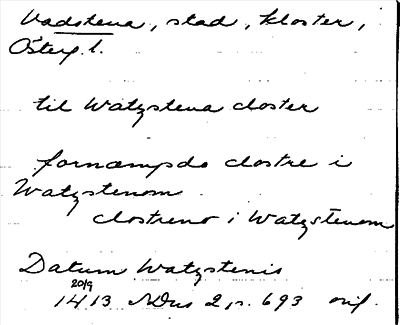 Vadstena, stad, kloster,
Österg. l.
til Watzstena closter
fornæmpdo clostre i
Watzstenom
clostreno i Watzstenom
Datum Watzstenis
20/9
1413 SDns 2, p. 693 orig.